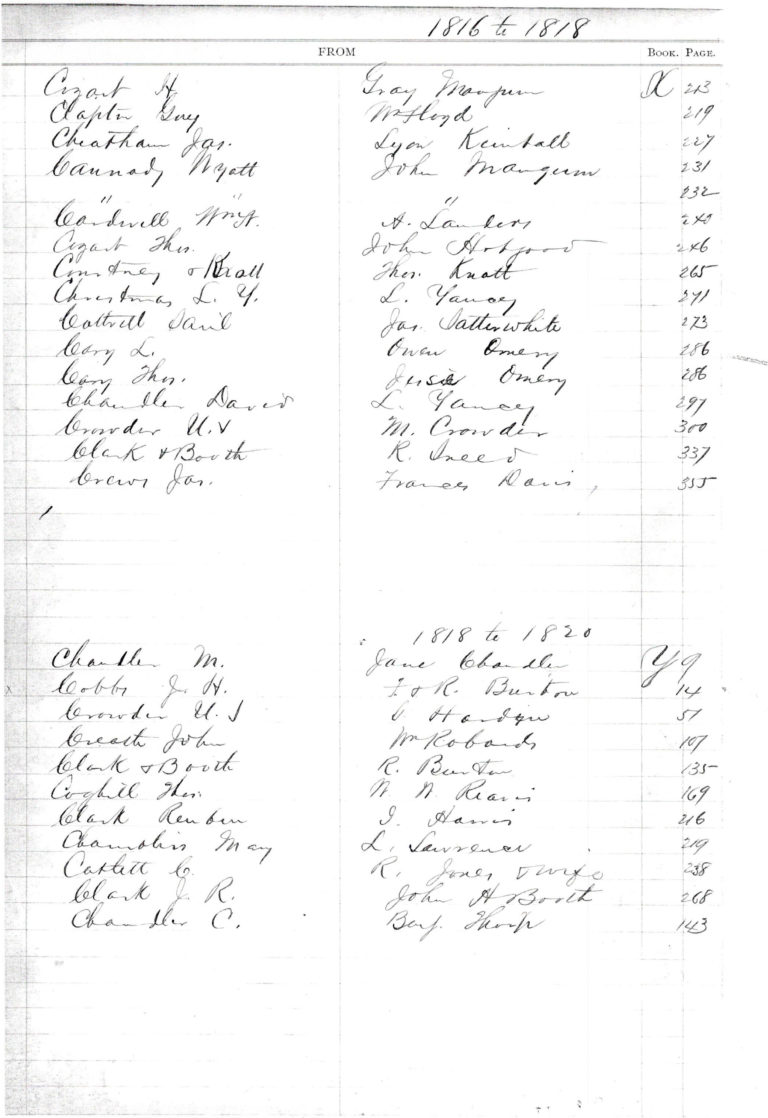 1816 to 1818
FROM BOOK. PAGE.
Cozart H. Gray Mangum X 213
Clapton Guy Wm Floyd 219
Cheatham Jas. Lyon Kimball 227
Cannady Wyatt John Mangum 231
" " " 232
Cardwell Wm A. Landers 240
Cozart Thos. John Hobgood 246
Courtney & Knott Thos. Knott 265
Christmas L. Y. L. Yancey 271
Cottrell Jas. Satterwhite 273
Cary L. Owen Omery 286
Cary Thos. Jessie Omery 286
Chandler David L. Yancey 297
Crowder U. M. Crowder 300
Clark & Booth R. Sneed 337
Crews Jas. Frances Davis, 355
1818 to 1820
Chandler M. Jane Chandler Y 9
Cobbs J. H. F. & R. Burton 14
Crowder U. J Harden 51
Creath John Wm Robards 107
Clark & Booth R. Burton 135
Coghill Thos. Reavis 169
Clark Reuben I. Harris 216
Chamblis May L. Lawrence 219
Catlett C. R. Jones & wife 238
Clark J. R. John H Booth 268
Chandler C. Benj. Thorp 143